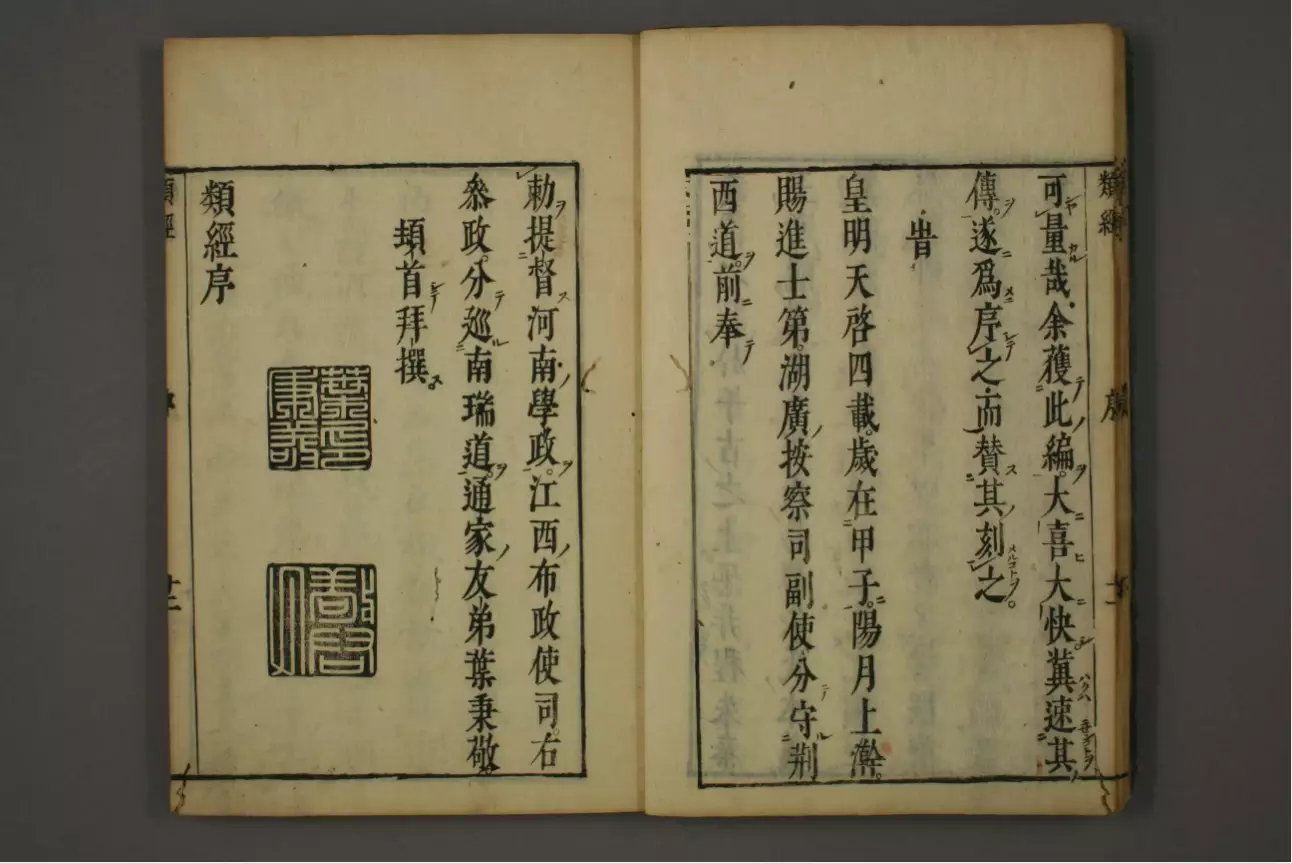 可量哉余獲此編大喜大快冀速其
傳遂爲序之而贊其刻之
旹
皇明天啓四載歲在甲子陽月上澣
賜進士第湖廣按察司副使分守荆
西道前奉
勅提督河南學政江西布政使司右
叅政分巡南瑞道通家友弟葉秉敬
頓首拜撰
類經序